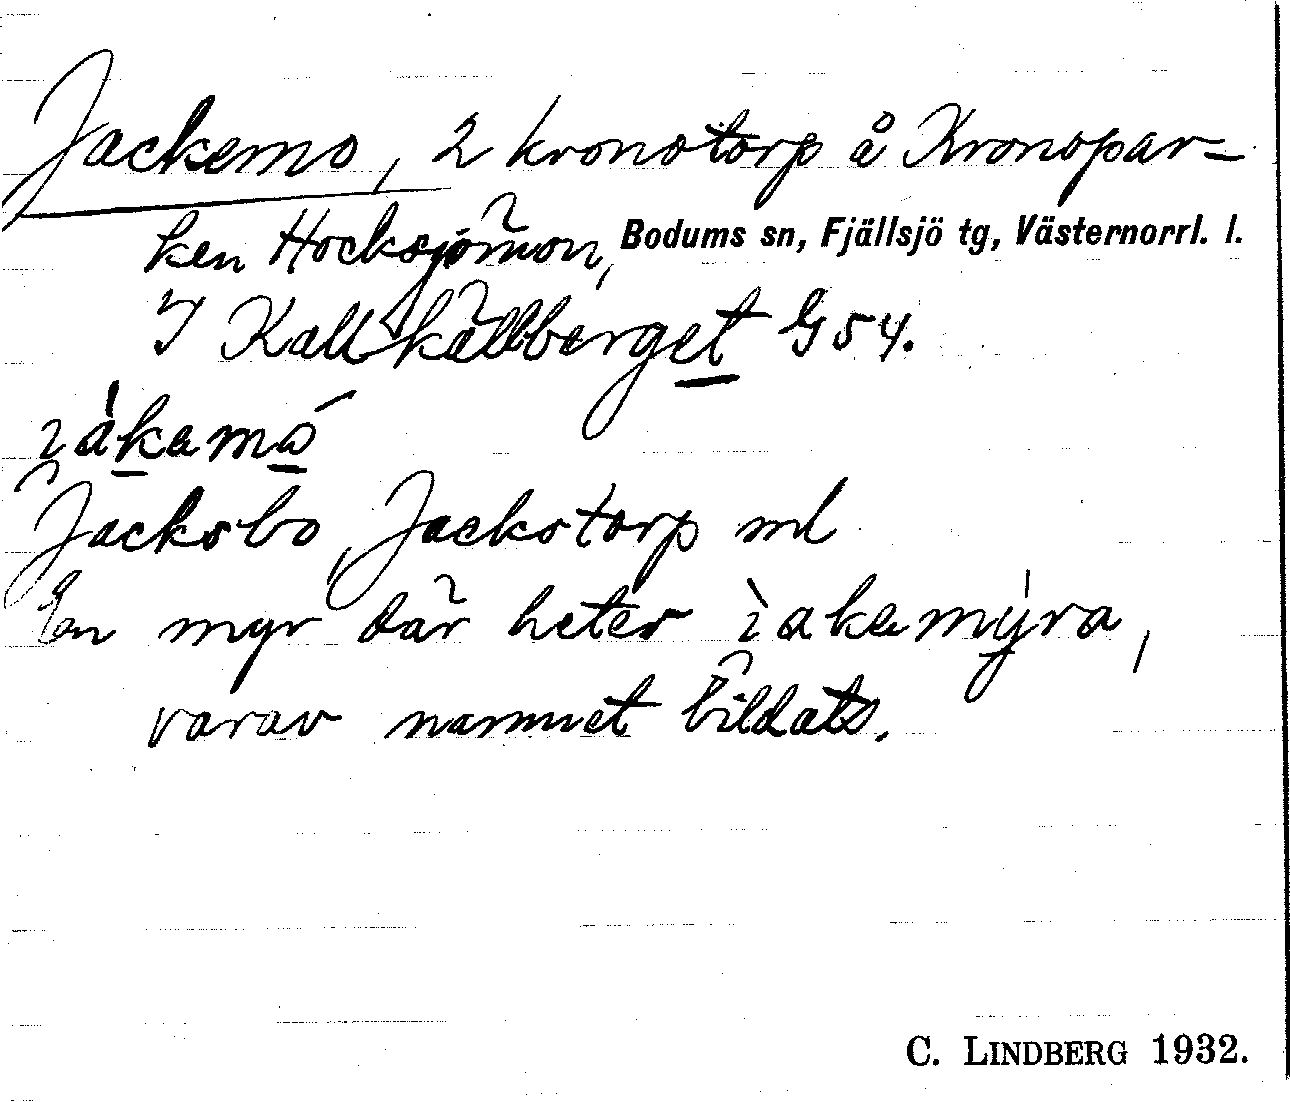 Jackemo, 2 kronotorp å Kronopar-
ken Hocksjömon, Bodums sn, Fjällsjö tg, Västernorrl. l.
I Kallkällberget G 54.
ìakamó
Jacksbo, Jackstorp ml
En myr där heter ìakemýra,
varav namnet bildats.
C. LINDBERG 1932.